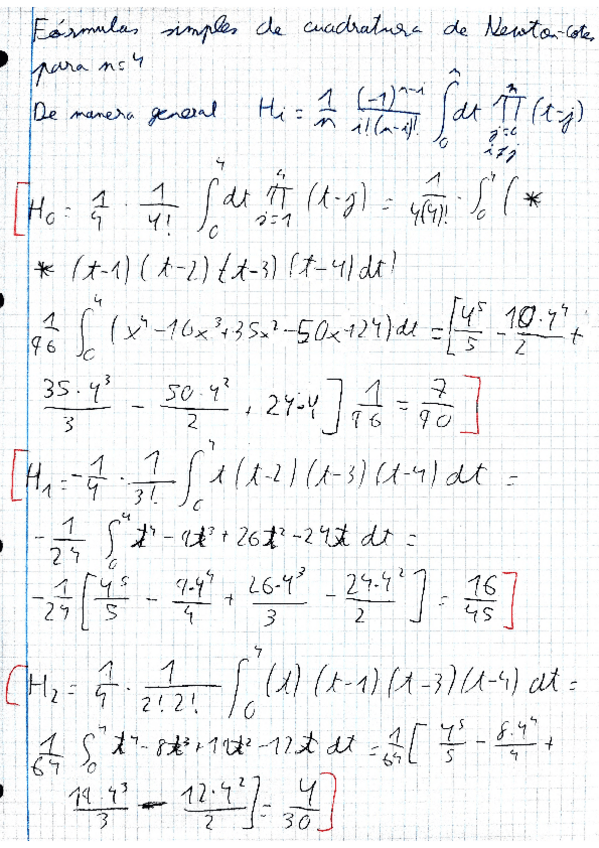 Fórmulas simples de cuadratura de Newton-Cotes
para n=4
De manera general H_i = 1/n (-1)^{n-i}/(i!(n-i)!) ∫_0^n dt ∏_{j=0, i≠j}^n (t-j)
[H_0 = 1/4 · 1/4! ∫_0^4 dt ∏_{j=1}^4 (t-j) = 1/(4(4)!) · ∫_0^4 ( *
* (t-1) (t-2) (t-3) (t-4) dt)
1/96 ∫_0^4 (x^4 - 10x^3 + 35x^2 - 50x + 24) dt = [4^5/5 - 10·4^4/2 +
35·4^3/3 - 50·4^2/2 + 24·4] 1/96 = 7/90]
[H_1 = -1/4 · 1/3! ∫_0^4 t (t-2) (t-3) (t-4) dt =
-1/24 ∫_0^4 t^4 - 9t^3 + 26t^2 - 24t dt =
-1/24 [4^5/5 - 9·4^4/4 + 26·4^3/3 - 24·4^2/2] = 16/45]
[H_2 = 1/4 · 1/(2! 2!) ∫_0^4 (t) (t-1) (t-3) (t-4) dt =
1/64 ∫_0^4 t^4 - 8t^3 + 19t^2 - 12t dt = 1/64 [4^5/5 - 8·4^4/4 +
19·4^3/3 - 12·4^2/2] = 4/30]